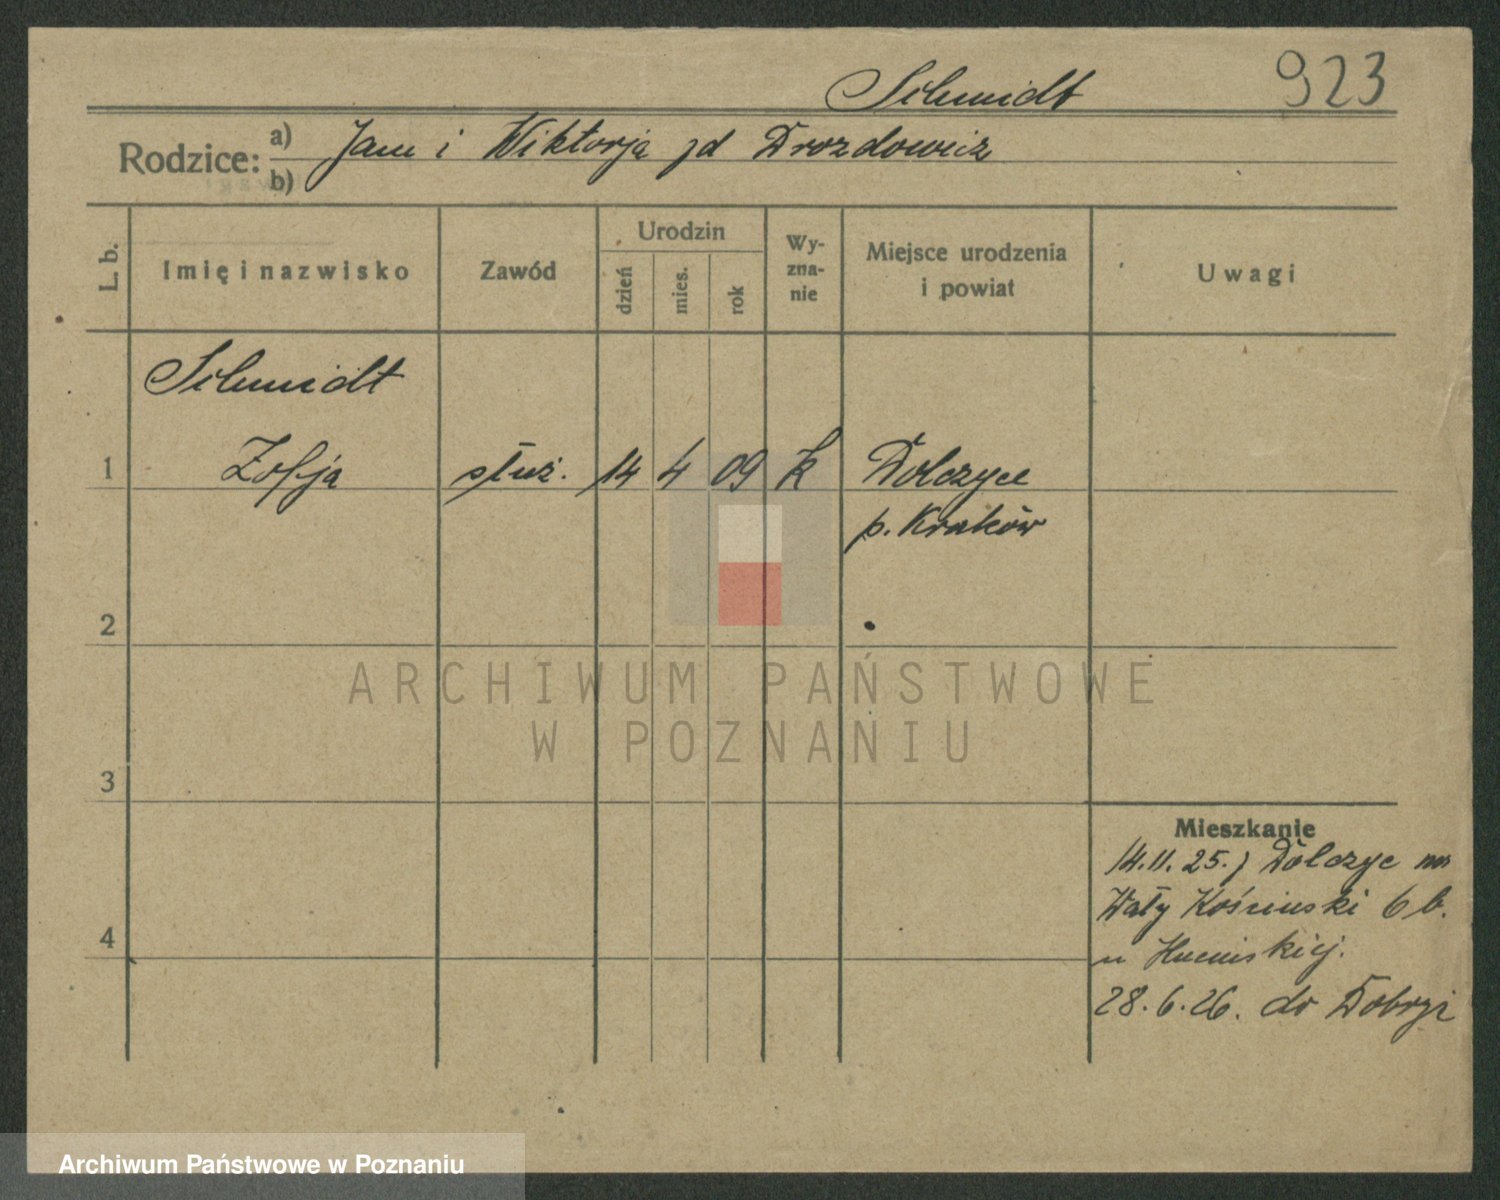 923
Schmidt
Rodzice: a) Jan i Wiktorja zd Drozdowicz
b)
L. b.
Imię i nazwisko
Zawód
Urodzin
dzień
mies.
rok
Wy-
zna-
nie
Miejsce urodzenia
i powiat
Uwagi
Schmidt
1 Zofja służ. 14 4 09 k Dolczyce
p. Kraków
2
3
4
Mieszkanie
14.11.25. Dolczyc na
Wały Kościuski 6 b.
u
28.6.26. do
ARCHIWUM PAŃSTWOWE
W POZNANIU
Archiwum Państwowe w Poznaniu